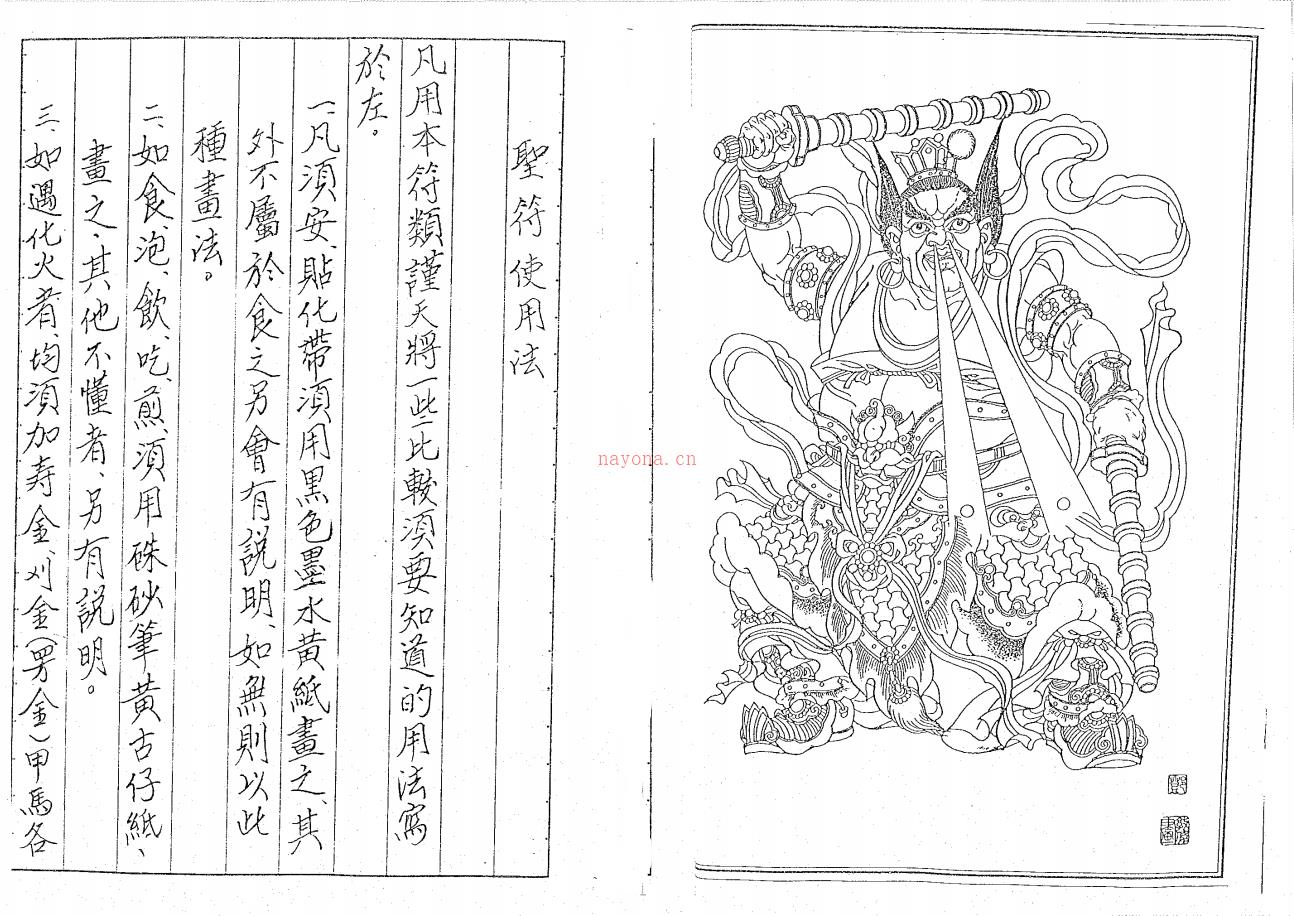 聖符使用法
凡用本符類謹天將一些比較須要知道的用法寫
於左。
一、凡須安、貼化帶須用黑色墨水黃紙畫之、其
外不屬於食之另會有説明、如無則以此
種畫法。
二、如食、泡、飲、吃、煎、須用硃砂筆黃古仔紙、
畫之、其他不懂者、另有説明。
三、如遇化火者、均須加寿金、刈金(男金)甲馬各
nayona.cn